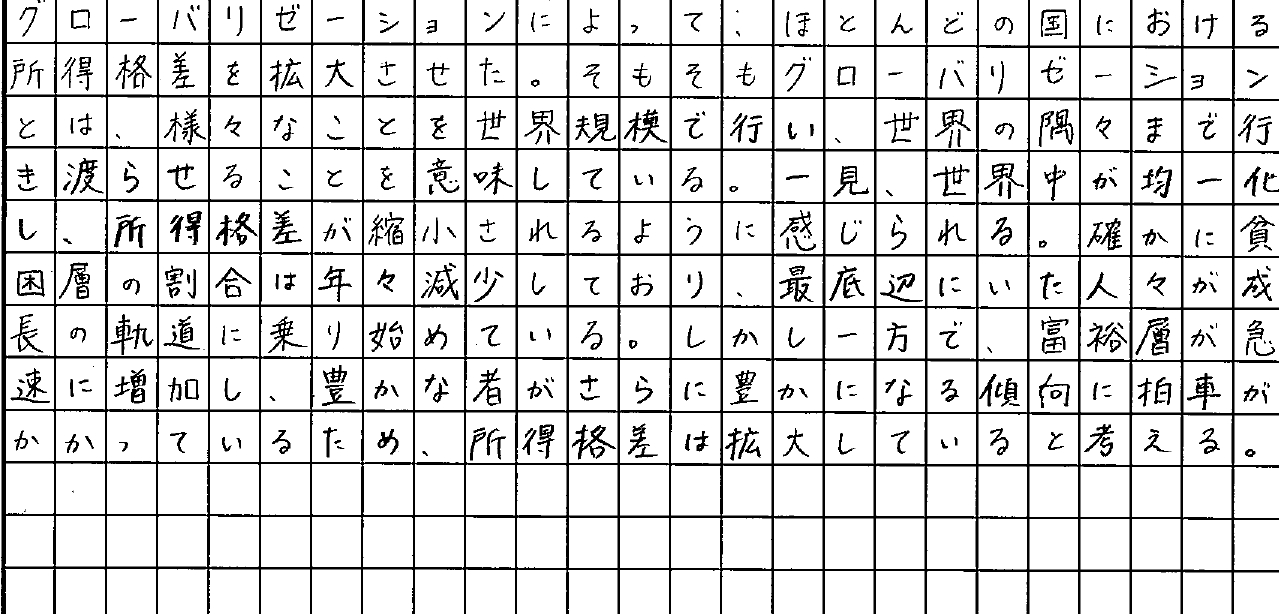 グローバリゼーションによって、ほとんどの国における
所得格差を拡大させた。そもそもグローバリゼーション
とは、様々なことを世界規模で行い、世界の隅々まで行
き渡らせることを意味している。一見、世界中が均一化
し、所得格差が縮小されるように感じられる。確かに貧
困層の割合は年々減少しており、最底辺にいた人々が成
長の軌道に乗り始めている。しかし一方で、富裕層が急
速に増加し、豊かな者がさらに豊かになる傾向に拍車が
かかっているため、所得格差は拡大していると考える。